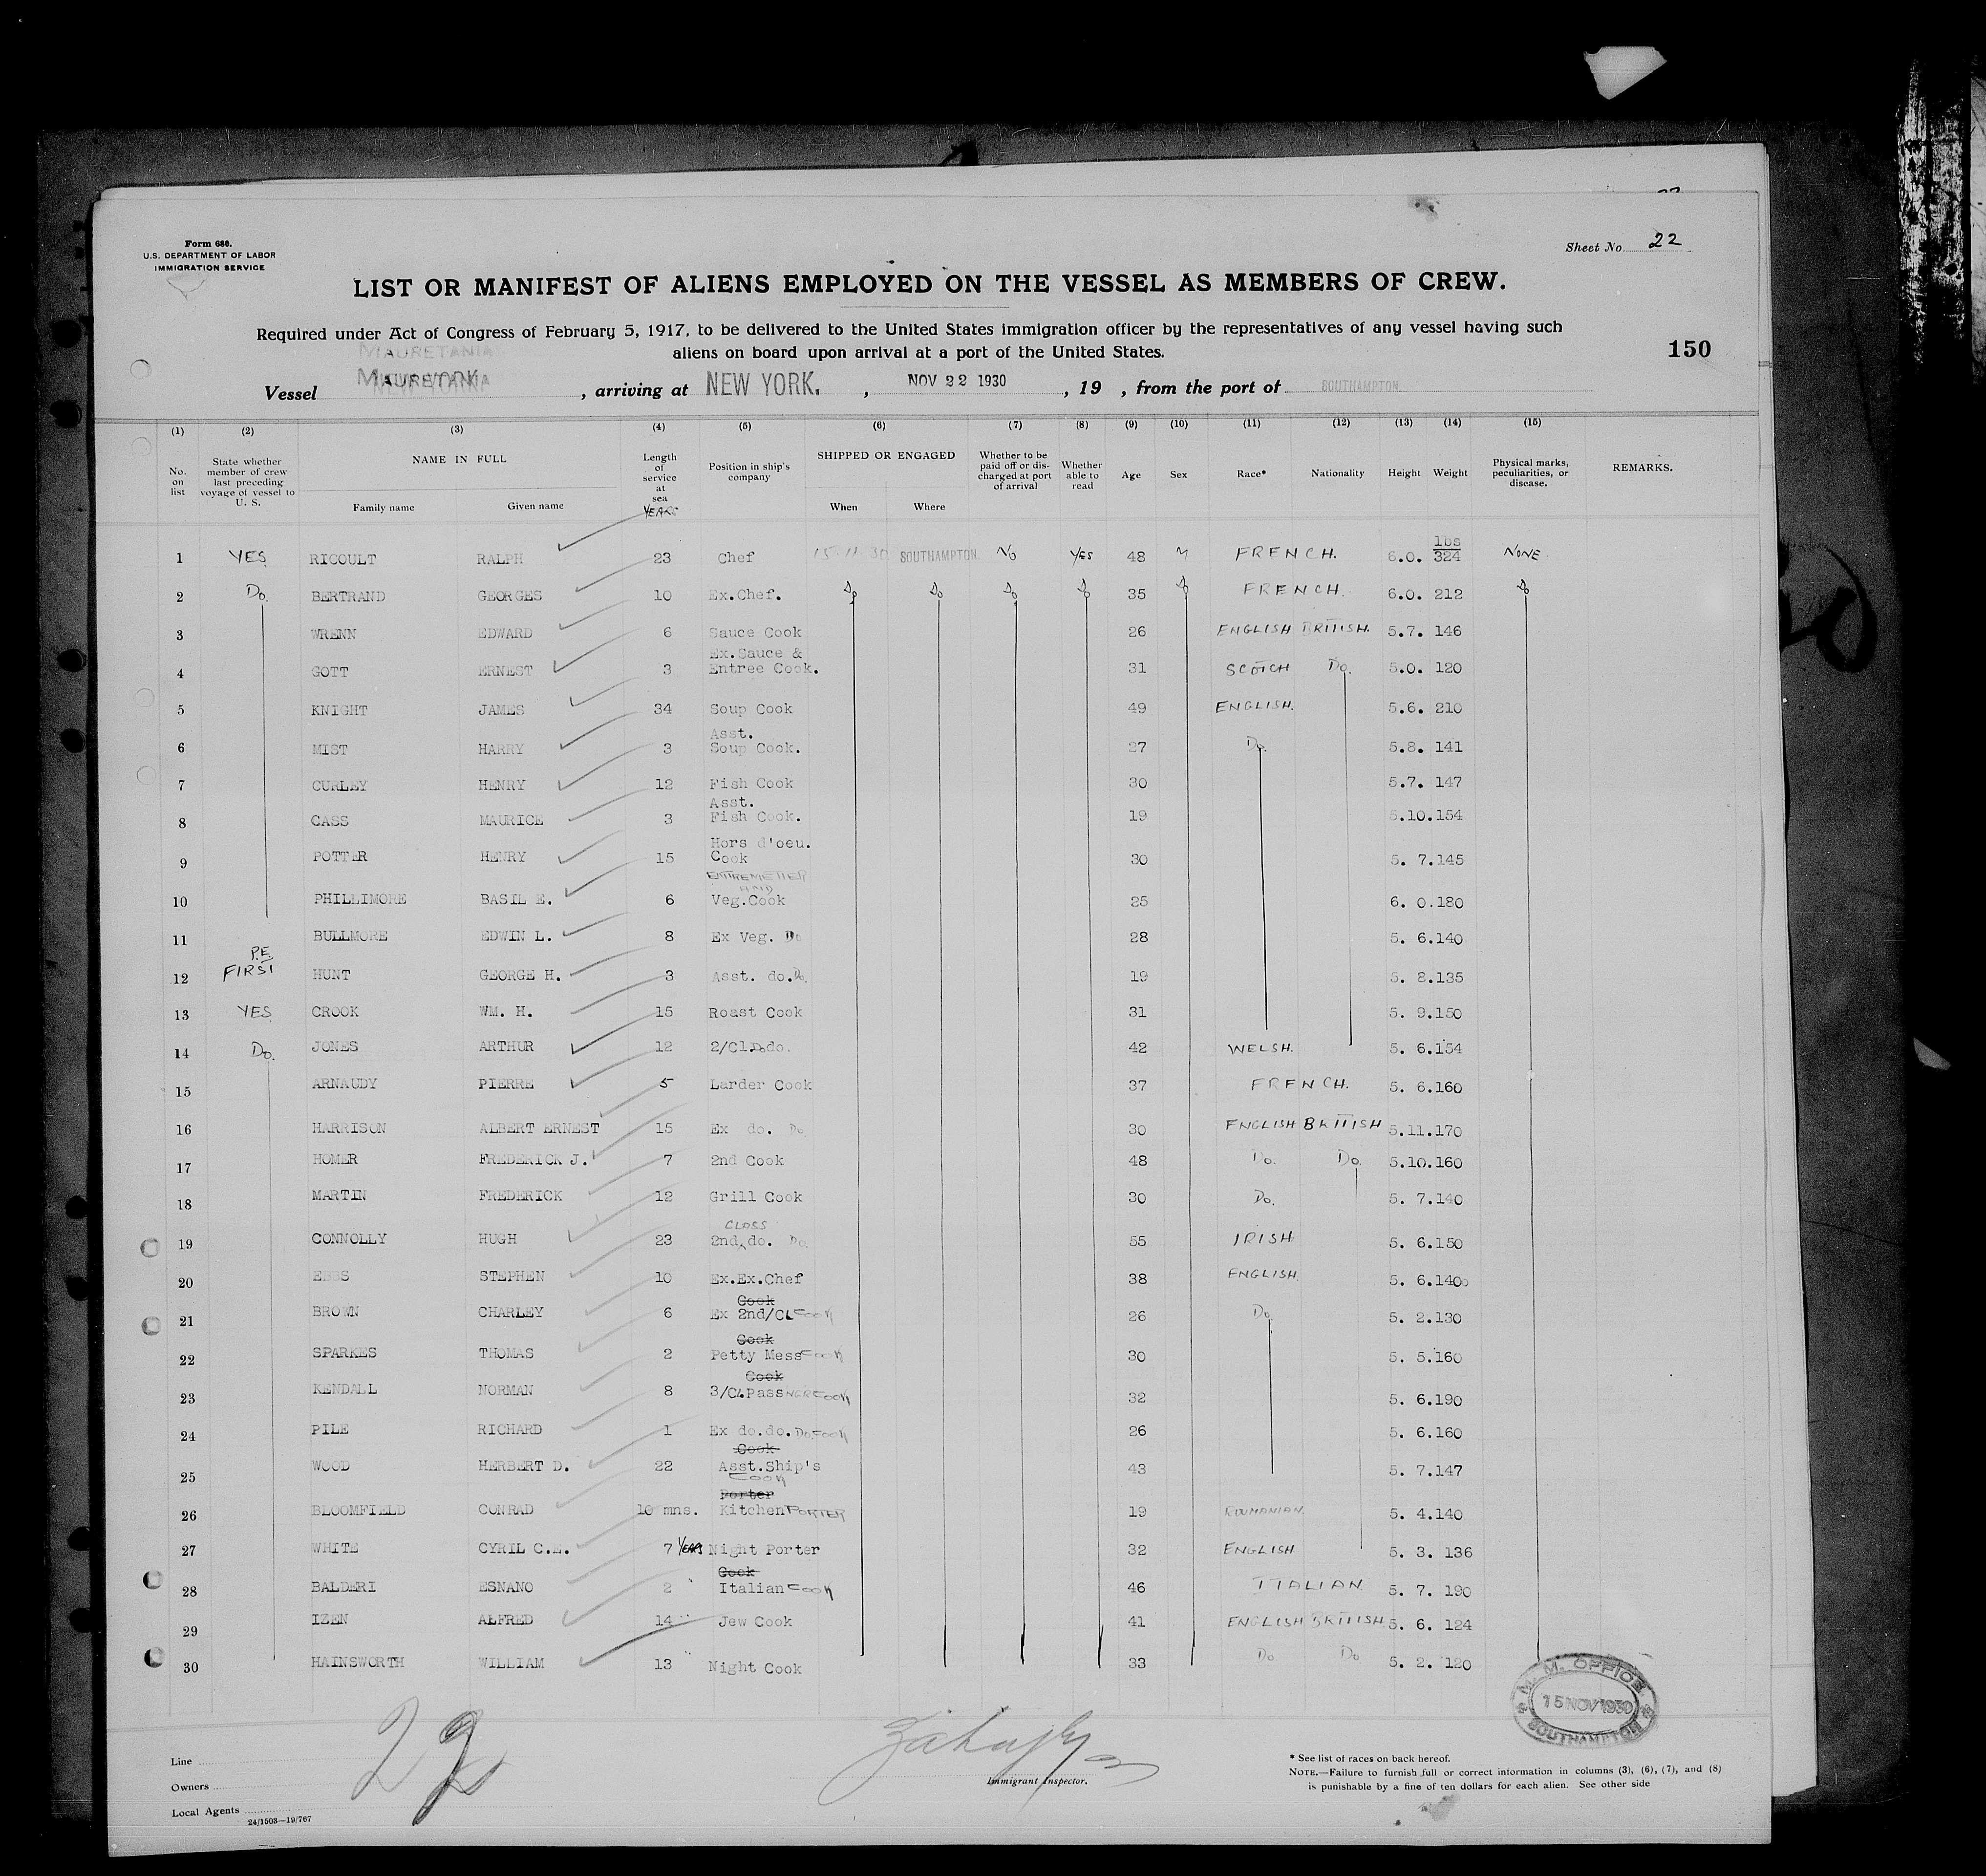 Form 680.
U.S. DEPARTMENT OF LABOR
IMMIGRATION SERVICE
Sheet No. 22
LIST OR MANIFEST OF ALIENS EMPLOYED ON THE VESSEL AS MEMBERS OF CREW.
Required under Act of Congress of February 5, 1917, to be delivered to the United States immigration officer by the representatives of any vessel having such
aliens on board upon arrival at a port of the United States.
150
MAURETANIA
Vessel MAURETANIA, arriving at NEW YORK. , NOV 22 1930 , 19 , from the port of SOUTHAMPTON
(1) (2) (3) (4) (5) (6) (7) (8) (9) (10) (11) (12) (13) (14) (15)
No. on list
State whether member of crew last preceding voyage of vessel to U. S.
NAME IN FULL
Family name Given name
Length of service at sea
YEARS
Position in ship's company
SHIPPED OR ENGAGED
When Where
Whether to be paid off or discharged at port of arrival
Whether able to read
Age
Sex
Race*
Nationality
Height
Weight
Physical marks, peculiarities, or disease.
REMARKS.
1 YES RICOULT RALPH 23 Chef 15-11-30 SOUTHAMPTON No YES 48 M FRENCH. 6.0. lbs 324 NONE
2 Do. BERTRAND GEORGES 10 Ex.Chef. Do Do Do Do 35 Do FRENCH. 6.0. 212 Do
3 WRENN EDWARD 6 Sauce Cook 26 ENGLISH BRITISH. 5.7. 146
4 GOTT ERNEST 3 Ex.Sauce & Entree Cook. 31 SCOTCH Do. 5.0. 120
5 KNIGHT JAMES 34 Soup Cook 49 ENGLISH. 5.6. 210
6 MIST HARRY 3 Asst. Soup Cook. 27 Do. 5.8. 141
7 CURLEY HENRY 12 Fish Cook 30 5.7. 147
8 CASS MAURICE 3 Asst. Fish Cook. 19 5.10.154
9 POTTER HENRY 15 Hors d'oeu. Cook 30 5. 7.145
10 PHILLIMORE BASIL E. 6 ENTREMETIER AND Veg.Cook 25 6. 0.180
11 BULLMORE EDWIN L. 8 Ex Veg. Do 28 5. 6.140
12 P.E. FIRST HUNT GEORGE H. 3 Asst. do. Do. 19 5. 8.135
13 YES CROOK WM. H. 15 Roast Cook 31 5. 9.150
14 Do. JONES ARTHUR 12 2/Cl.Do.do. 42 WELSH. 5. 6.154
15 ARNAUDY PIERRE 5 Larder Cook 37 FRENCH. 5. 6.160
16 HARRISON ALBERT ERNEST 15 Ex do. Do 30 ENGLISH BRITISH 5.11.170
17 HOMER FREDERICK J. 7 2nd Cook 48 Do. Do. 5.10.160
18 MARTIN FREDERICK 12 Grill Cook 30 Do. 5. 7.140
19 CONNOLLY HUGH 23 CLASS 2nd, do. Do 55 IRISH 5. 6.150
20 EBBS STEPHEN 10 Ex.Ex.Chef 38 ENGLISH. 5. 6.140
21 BROWN CHARLEY 6 Cook Ex 2nd/CL COOK 26 Do. 5. 2.130
22 SPARKES THOMAS 2 Cook Petty Mess COOK 30 5. 5.160
23 KENDALL NORMAN 8 Cook 3/CL Pass NGR COOK 32 5. 6.190
24 PILE RICHARD 1 Ex do.do. Do COOK 26 5. 6.160
25 WOOD HERBERT D. 22 Cook Asst.Ship's COOK 43 5. 7.147
26 BLOOMFIELD CONRAD 10 mns. Porter Kitchen PORTER 19 ROUMANIAN. 5. 4.140
27 WHITE CYRIL C.E. 7 YEARS Night Porter 32 ENGLISH 5. 3. 136
28 BALDERI ESNANO 2 " Cook Italian COOK 46 ITALIAN 5. 7. 190
29 IZEN ALFRED 14 " Jew Cook 41 ENGLISH BRITISH 5. 6. 124
30 HAINSWORTH WILLIAM 13 " Night Cook 33 Do Do 5. 2. 120
M. M. OFFICE
15 NOV 1930
SOUTHAMPTON
22
Line
Owners
Local Agents
24/1503—19/767
Immigrant Inspector.
* See list of races on back hereof.
NOTE.—Failure to furnish full or correct information in columns (3), (6), (7), and (8)
is punishable by a fine of ten dollars for each alien. See other side